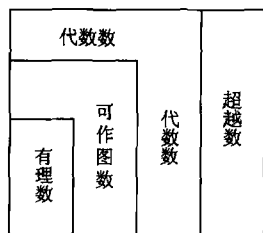 代数数
有理数
可作图数
代数数
超越数